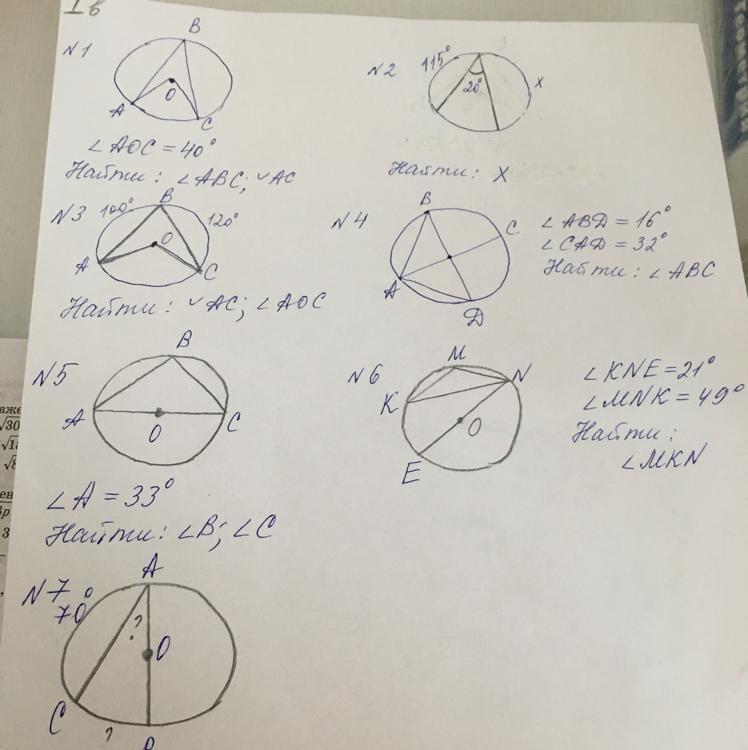 I в
N1
B
O
A
C
∠AOC = 40°
Найти: ∠ABC; ◡AC
N2
115°
20°
x
Найти: x
N3
100°
B
120°
O
A
C
Найти: ◡AC; ∠AOC
N4
B
C
A
D
∠ABD = 16°
∠CAD = 32°
Найти: ∠ABC
N5
B
A
O
C
∠A = 33°
Найти: ∠B; ∠C
N6
M
N
K
O
E
∠KNE = 21°
∠MNK = 49°
Найти:
∠MKN
N7
70°
A
?
O
C
?